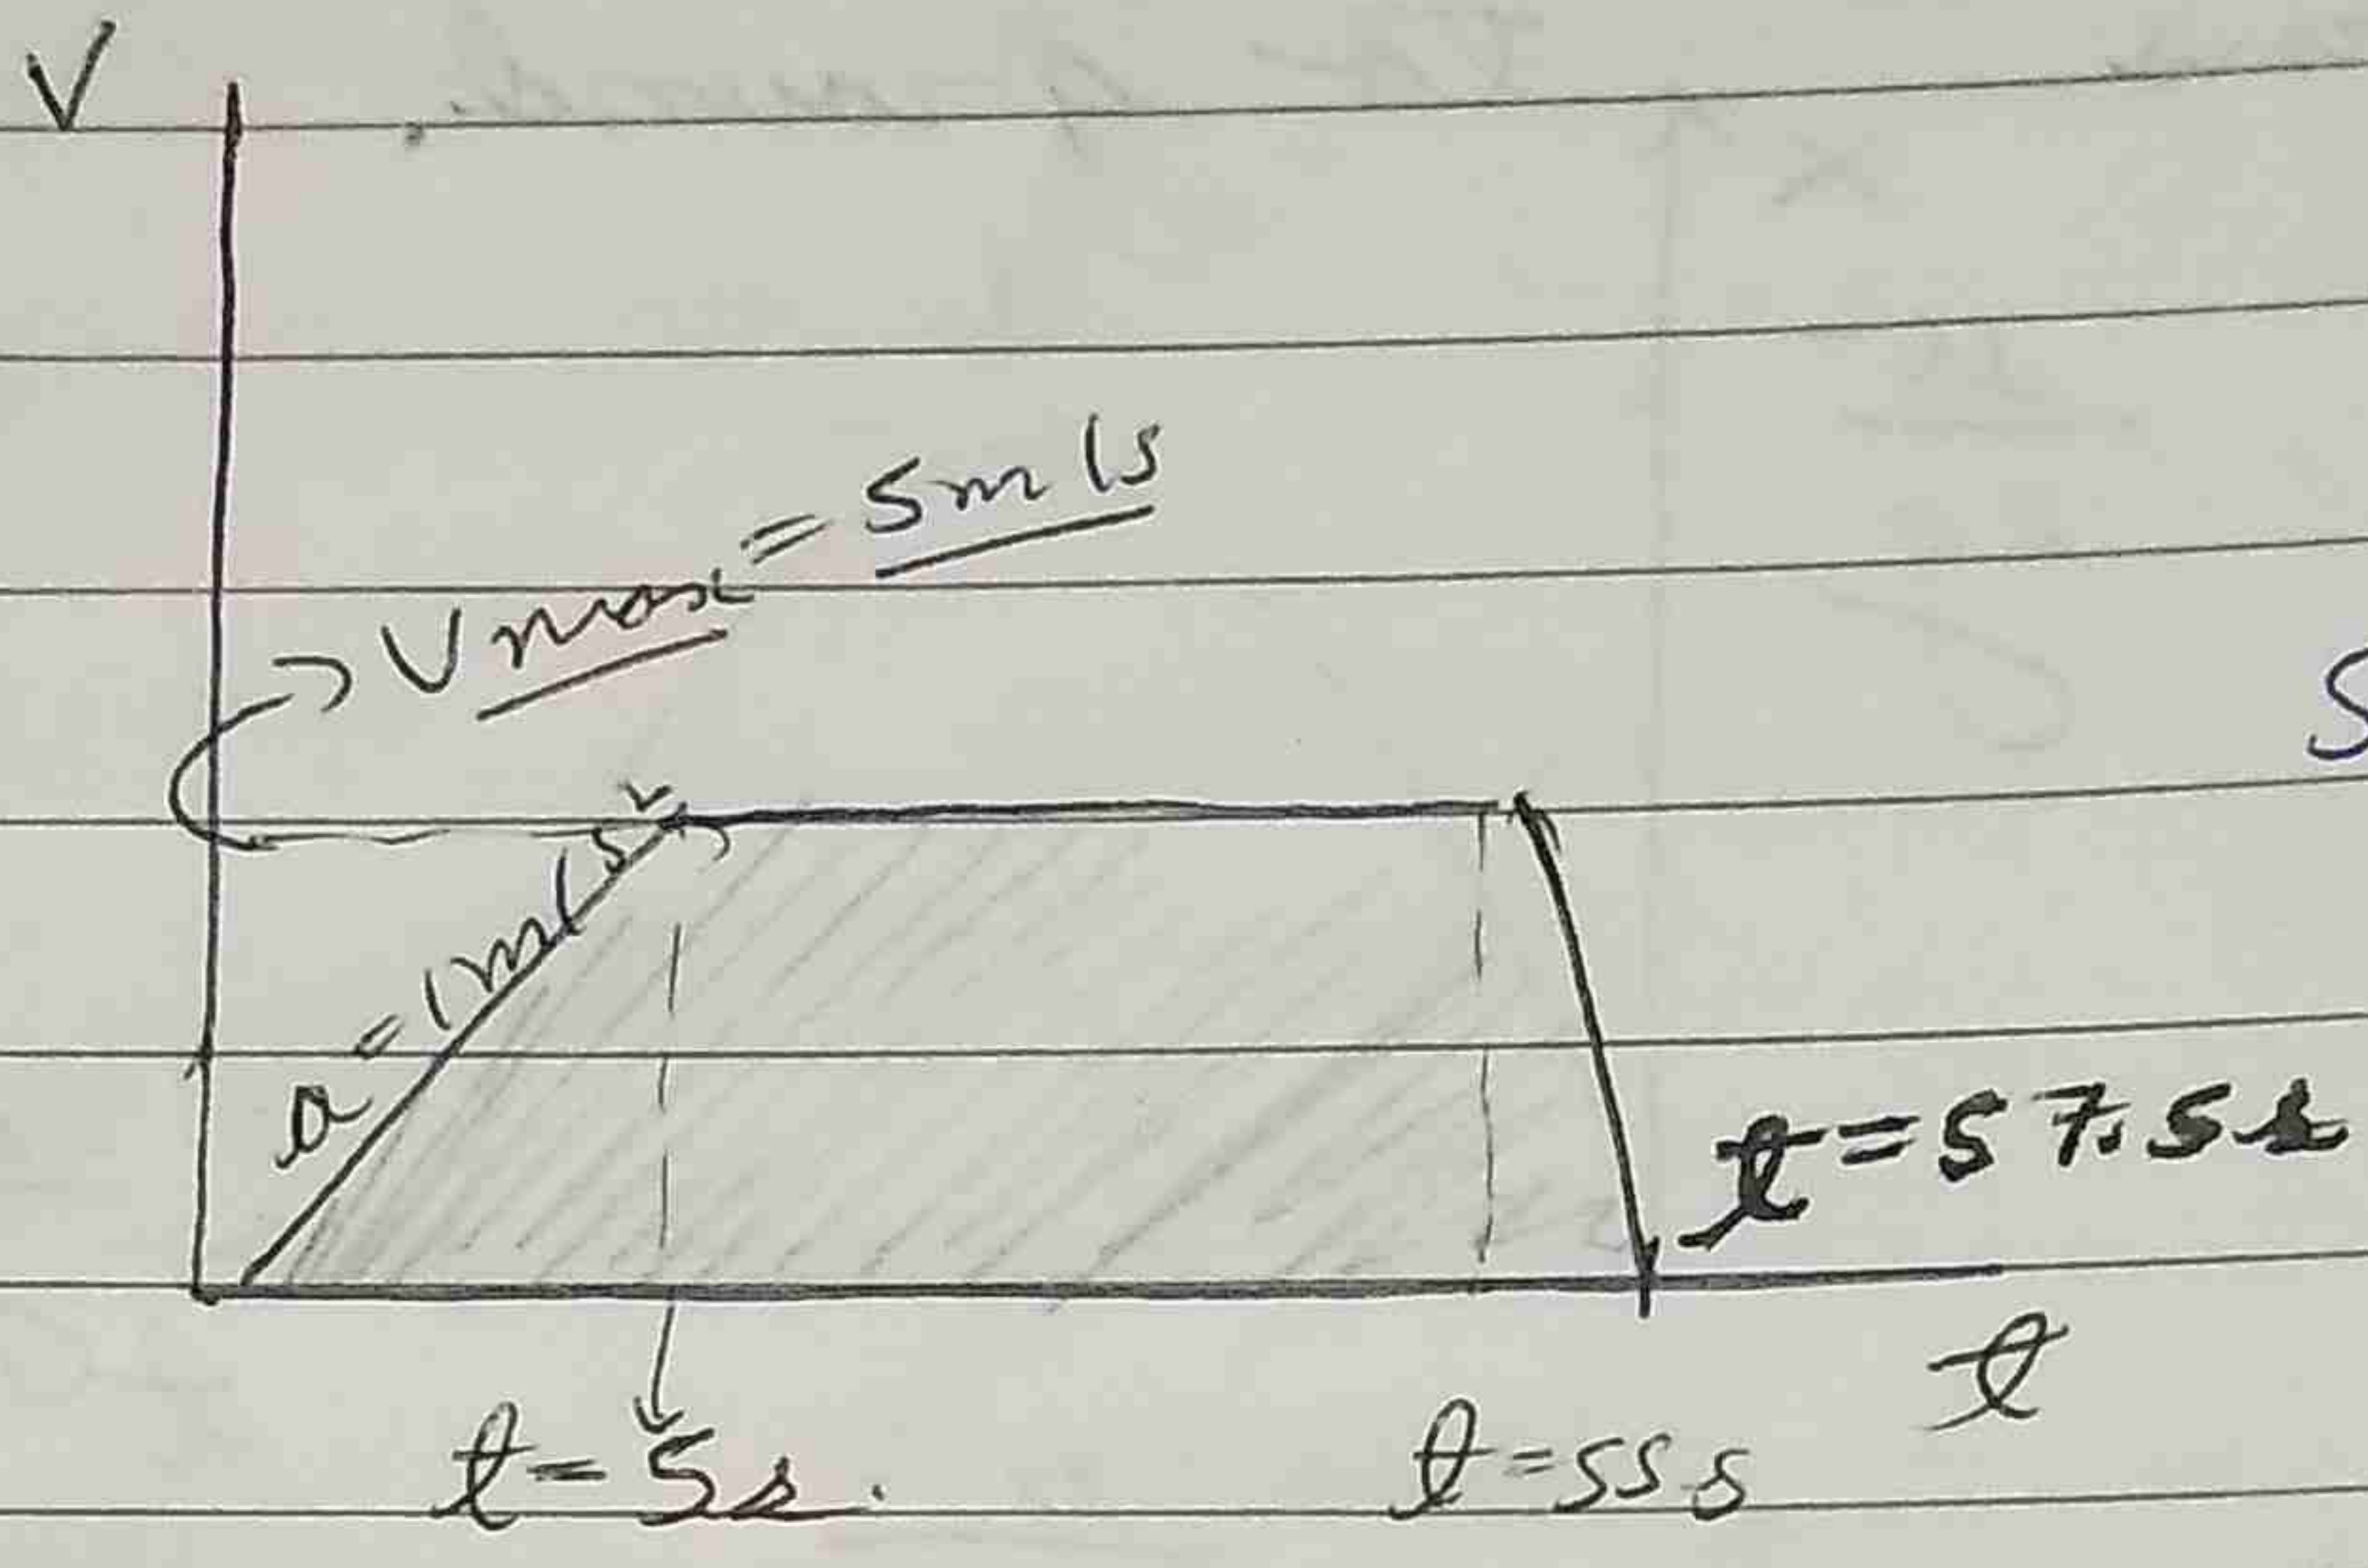 V
Vmax = 5m/s
a = 1m/s²
t = 57.5s
t = 5s.
t = 55s
t